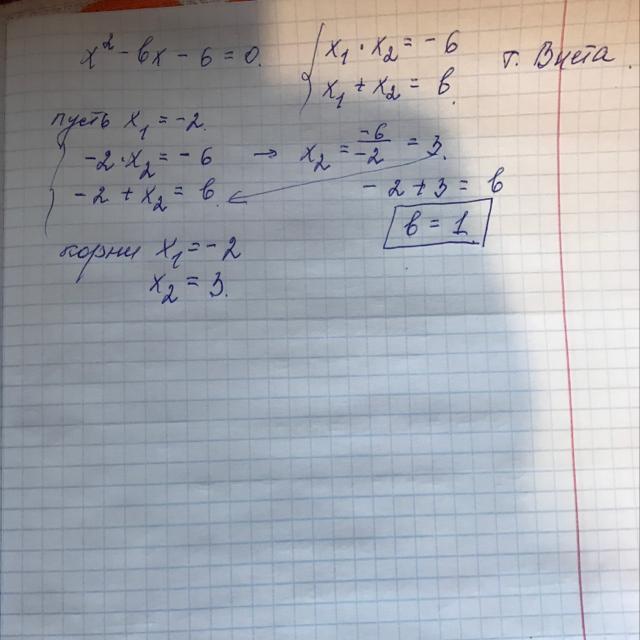 x² - bx - 6 = 0.
{ x₁ · x₂ = -6
x₁ + x₂ = b.
т. Виета.
пусть x₁ = -2.
{ -2 · x₂ = -6 → x₂ = -6/-2 = 3.
-2 + x₂ = b.
-2 + 3 = b
b = 1
корни x₁ = -2
x₂ = 3.